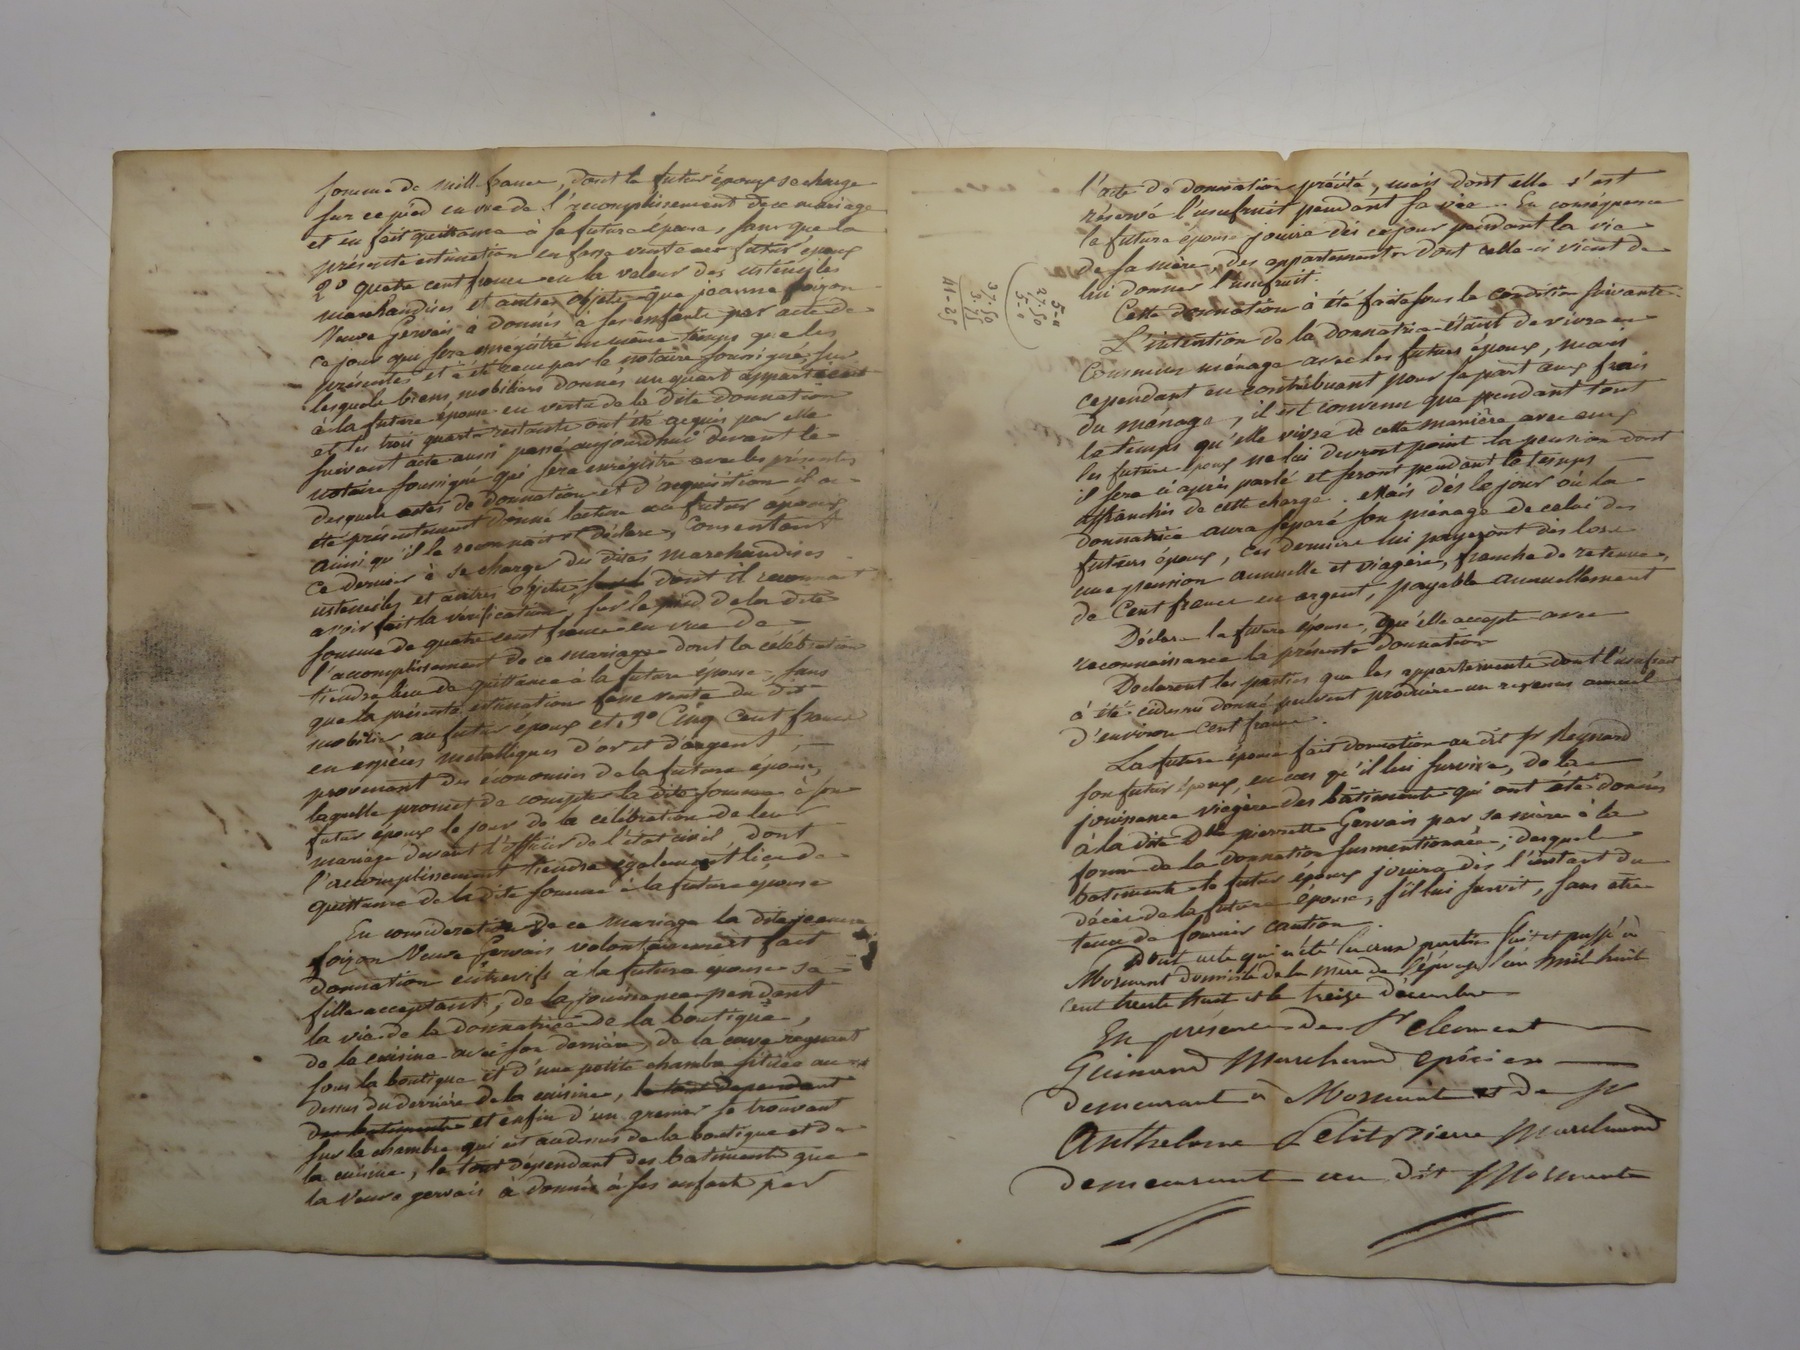 somme de mill francs, dont le futur époux se charge
sur ce pied en vue de l'accomplissement de ce mariage
et en fait quittance à la future épouse, sans que la
présente estimation en fasse vente au futur époux
2° quatre cent francs en la valeur des ustensiles
marchandises et autres objets que jeanne foizon
Veuve Gervais à donnés à ses enfants par acte de
ce jour qui sera enregistré en même temps que les
présentes et a été reçu par le notaire soussigné; sur
lesquels biens mobiliers donnés un quart appartient
à la future épouse en vertu de la dite donnation
et les trois quarts restants ont été acquis par elle
suivant acte aussi passé aujourd'hui devant le
notaire soussigné qui sera enrégistré avec les présentes
desquels actes de donnation et d'acquisition il a
été présentement donné lecture au futur époux
ainsi qu'il le reconnait et déclare, Consentant
Ce dernier à se charger des dites marchandises
ustensiles et autres objets, dont il reconnait
avoir fait la vérification, sur le pied de la dite
somme de quatre cent francs en vue de
l'accomplissement de ce mariage dont la célébration
tiendra lieu de quittance à la future épouse, sans
que la présente estimation fasse vente du dit
mobilier au futur époux et 3° Cinq cent francs
en espèces métalliques d'or et d'argent
provenant des économies de la future épouse,
laquelle promet de compter la dite somme à son
futur époux le jour de la célébration de leur
mariage devant l'officier de l'état civil dont
l'accomplissement tiendra également lieu de
quittance de la dite somme à la future épouse
En considération de ce mariage la dite jeanne
foizon Veuve Gervais volontairement fait
donnation entrevifs à la future épouse sa
fille acceptante, de la jouissance pendant
la vie de la donnatrice de la boutique,
de la cuisine avec son derrière, de la cave regnant
sous la boutique et d'une petite chambre située au
dessus du derrière de la cuisine, le tout dépendant
des batiments et enfin d'un grenier se trouvant
sur la chambre qui est audessus de la boutique et de
la cuisine, le tout dépendant des batiments que
la Veuve gervais à donnés à ses enfants par
l'acte de donnation précité, mais dont elle s'est
réservé l'usufruit pendant sa vie. En conséquence
la future épouse jouira dès ce jour pendant la vie
de sa mère, des appartements dont celle-ci vient de
lui donner l'usufruit.
Cette donnation à été faite sous la condition suivante:
L'intention de la donnatrice étant de vivre en
Commun ménage avec les futurs époux, mais
cependant en contribuant pour sa part aux frais
du ménage, il est convenu que pendant tout
le temps qu'elle vivra de cette manière avec eux
les futurs époux ne lui devront point la pension dont
il sera ci après parlé et seront pendant le temps
affranchis de cette charge. Mais dès le jour où la
donnatrice aura séparé son ménage de celui des
futurs époux, ces derniers lui payeront dès lors
une pension annuelle et viagère, franche de retenue,
de Cent francs en argent, payable annuellement
Déclare la future épouse, qu'elle accepte avec
reconnaissance la présente donnation
Déclarent les parties que les appartements dont l'usufruit
à été cidessus donné peuvent produire un revenu annuel
d'environ cent francs.
La future épouse fait donnation au dit Sr Reynard
son futur époux, en cas qu'il lui survive, de la
jouissance viagère des bâtiments qui ont été donnés
à la dite Dlle pierrette Gervais par sa mère à la
forme de la donnation susmentionnée; desquels
batiments le futur époux jouira dès l'instant du
décès de la future épouse, s'il lui survit, sans être
tenu de fournir caution.
Dont acte qui a été lu aux parties fait et passé à
Mornant domicile de la mère de l'épouse l'an mil huit
cent trente huit et le treize décembre
En présence de Sr Clement
Guinand Marchand epicier
demeurant à Mornant et de Sr
Anthelme Petit Pierre Marchand
demeurant au dit Mornant
5-0
27-50
5-0
37-50
3-75
41-25